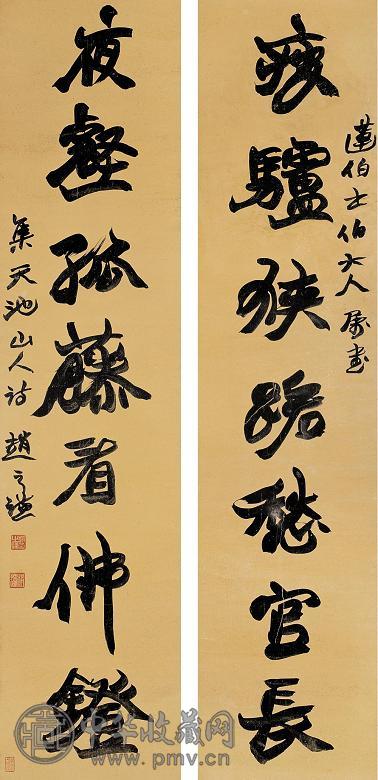 蓮伯士伯大人屬書
疲驢狹路愁官長
夜壑孤藤看佛鐙
集天池山人詩 趙之謙
中华收藏网
www.pmv.cn